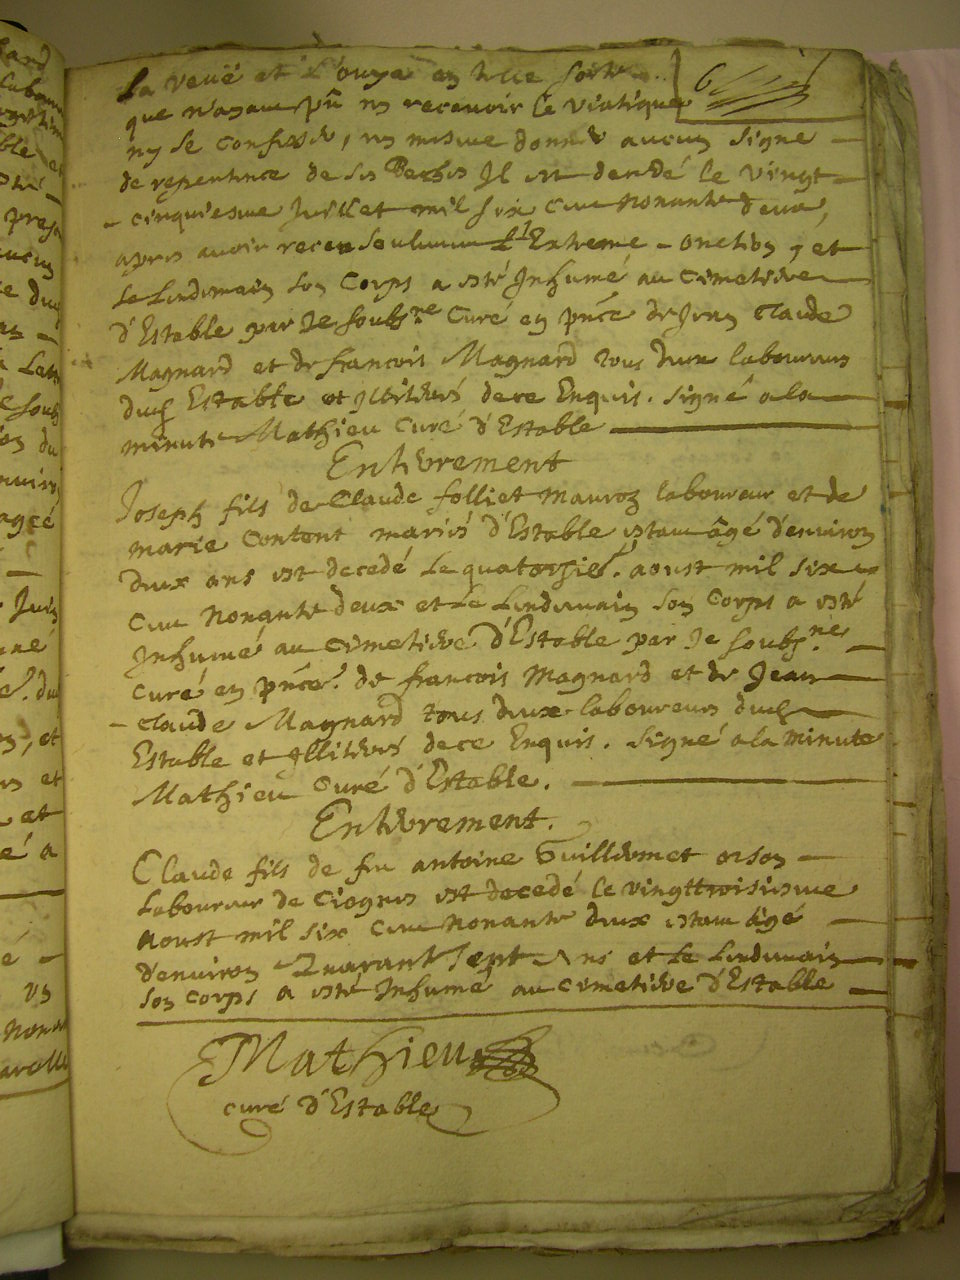 la veuë et L'ouye en telle sorte
6
que n'ayant pû ny recevoir le viatique
ny se confesser, ny mesme donner aucun signe
de repentence de ses Pechés Il est decedé le vingt
cinquiesme Juillet mil six cent nonante deux,
apres avoir receu seulement L'Extreme-onction, et
le Lendemain son Corps a esté Inhumé au Cimetiere
d'Estable par Je soubs.né Curé en pñce de Jean Claude
Magnard et de francois Magnard tous deux laboureurs
dud Estable et Illiterés de ce Enquis. signé a la
minute Mathieu Curé d'Estable
Enterrement
Joseph fils de Claude folliet Mauroz laboureur et de
marie Contont mariés d'Estable estant âgé d'environ
deux ans est decedé Le quatorzie. aoust mil six
cent Nonante deux et Le Lendemain son Corps a esté
Inhumé au Cimetiere d'Estable par Je soubs.né
Curé en pñce. de francois Magnard et de Jean
Claude Magnard tous deux laboureurs dud
Estable et Illiterés de ce Enquis. signé a la minute
Mathieu Curé d'Estable.
Enterrement.
Claude fils de feu antoine Guilliermet orson
Laboureur de Ciognes est decedé le vingttroisiesme
Aoust mil six cent nonante deux estant âgé
d'environ Quarante sept Ans et Le Lendemain
son Corps a esté Inhumé au Cimetiere d'Estable
Mathieu
curé d'Estable